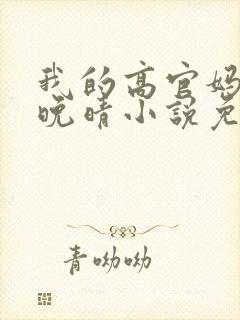 我的高官妈
晚晴小说免
青呦呦